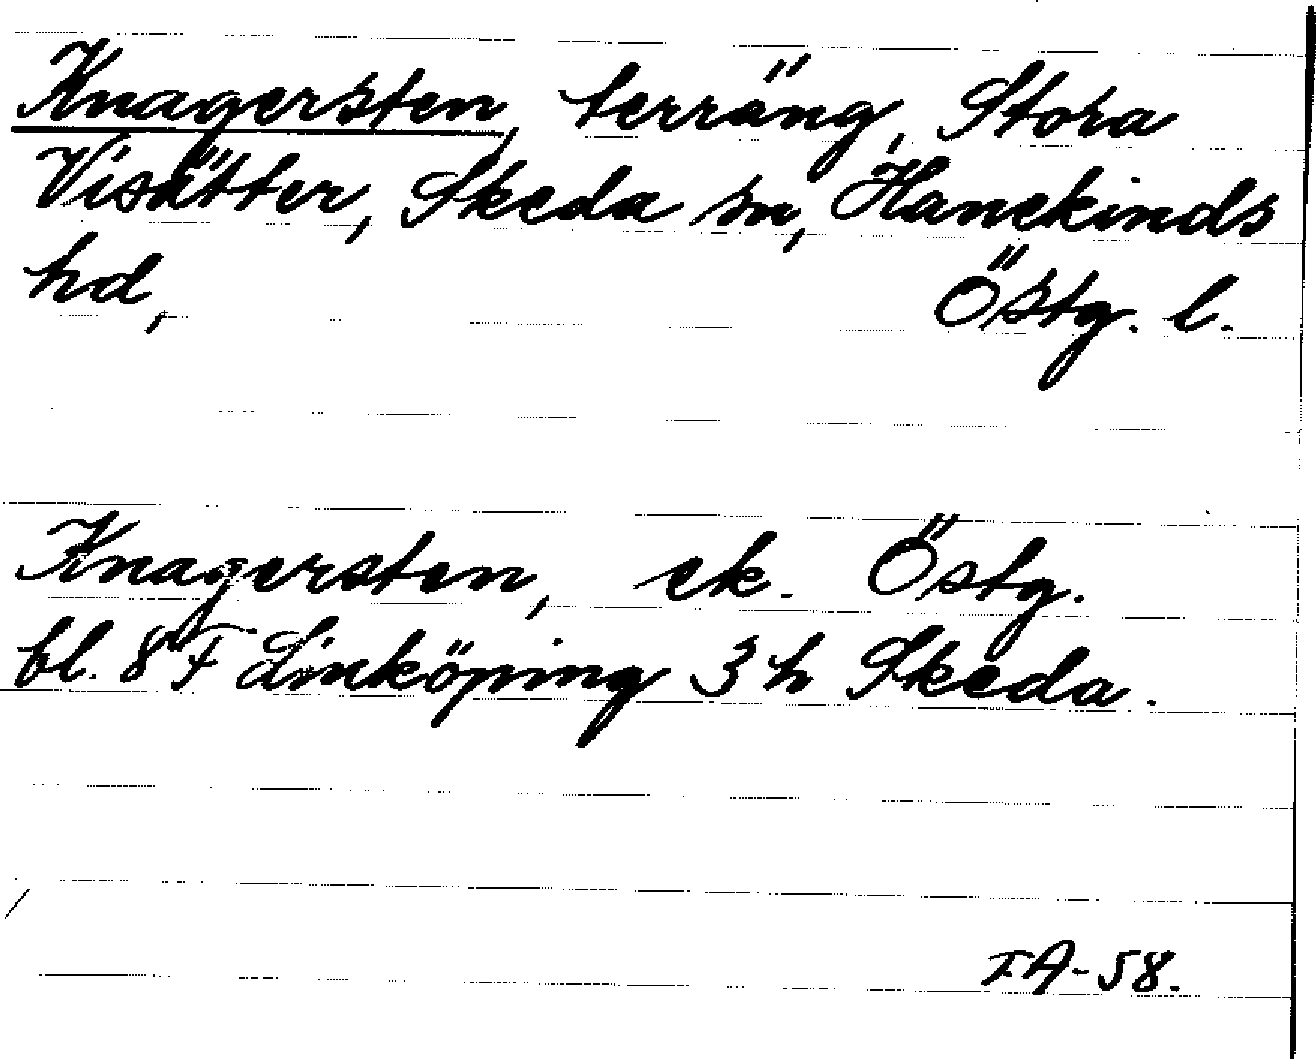 Knagersten, terräng, Stora
Visätter, Skeda sn, Hanekinds
hd, Östg. l.
Knagersten, ek. Östg.
bl. 8 F Linköping 3 h Skeda.
IA-58.